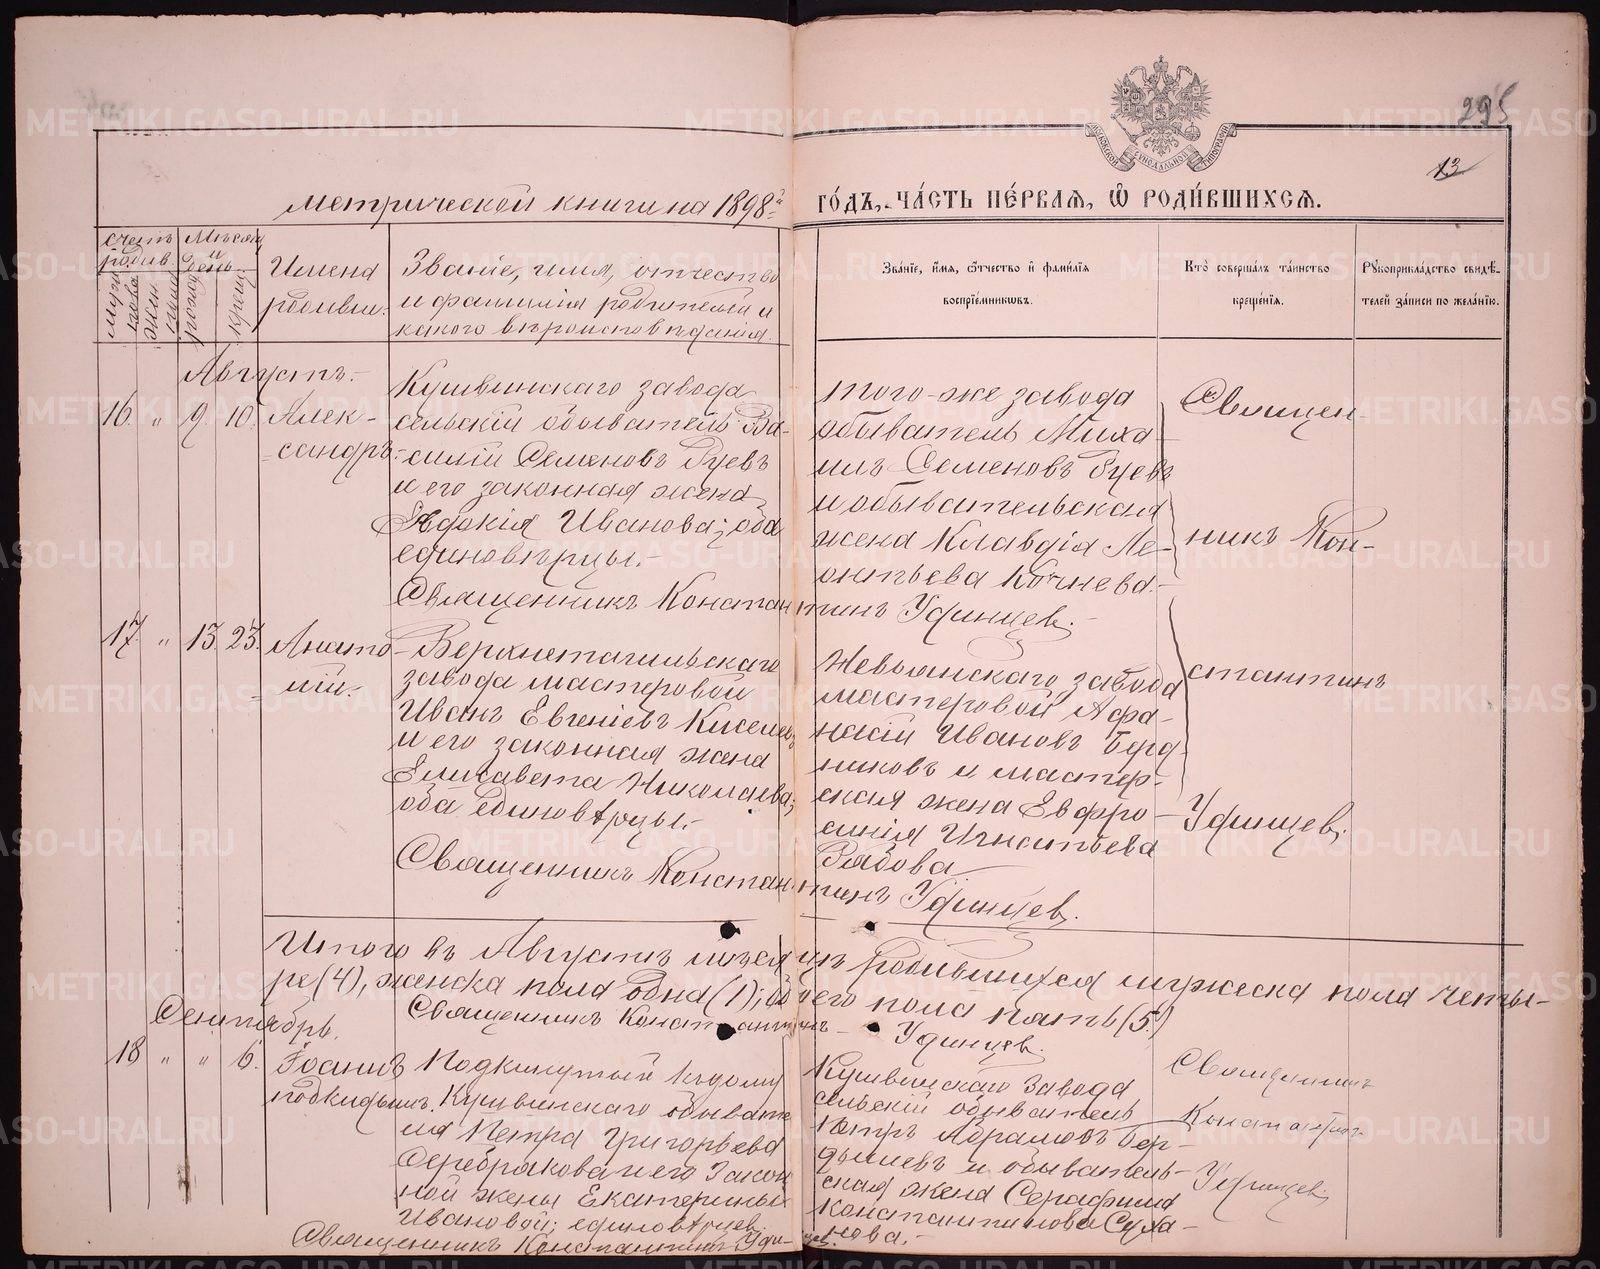 295
13
метрической книги на 1898й
го́дъ, ча́сть пе́рвая, ѡ҆ роди́вшихся.
счетъ родив.
мужеска
женска
Мѣсяц и день
рожд.
крещ.
Имена родивш.
Званіе, имя, отчество
и фамилія родителей и
какого вѣроисповѣданія.
Зва́нїе, и҆́мя, ѻ҆́тчество и҆ фами́лїя
воспрїе́мникѡвъ.
Кто̀ соверша́лъ та́инство
креще́нїя.
Рꙋкоприкла́дство свидѣ́-
телей за́писи по жела́нїю.
Августъ.
16. " 9. 10. Алек-
сандръ.
Кушвинскаго завода
сельскій обыватель Ва-
силій Семеновъ Гуевъ
и его законная жена
Евдокія Иванова; оба
единовѣрцы.-
того-же завода
обыватель Миха-
илъ Семеновъ Гуевъ
и обывательская
жена Клавдія Ле-
онтьева Кочнева.-
Священ-
никъ Кон-
стантинъ
Удинцев.
Священникъ Константинъ Удинцев.-
17. " 13. 23. Анато-
лій.-
Верхнетагильскаго
завода мастеровой
Иванъ Евгеніевъ Киселевъ
и его законная жена
Елизавета Николаева;
оба единовѣрцы.-
Невьянскаго завода
мастеровой Афа-
насій Ивановъ
и мастер-
ская жена Евфро-
синія Игнатьева
Рябова
Священникъ Константинъ Удинцев.
Итого въ Августѣ мѣсяцѣ родившихся мужеска пола четы-
ре (4), женска пола одна (1); обоего пола пять (5)
Священникъ Константинъ Удинцев.
Сентябрь.
18 " " 6. Іоаннъ
подкидышъ.
Подкинутый къ дому
Кушвинскаго обывате
ля Петра Григорьева
Серебрякова и его Закон
ной жены Екатерины
Ивановой; единовѣрцев.
Кушвинскаго Завода
сельскій обыватель
Петръ Абрамовъ Бер-
дышевъ и обыватель-
ская жена Серафима
Константинова Суха-
нова.-
Священникъ
Константинъ
Удинцев.
Священникъ Константинъ Удинцев.
METRIKI.GASO-URAL.RU